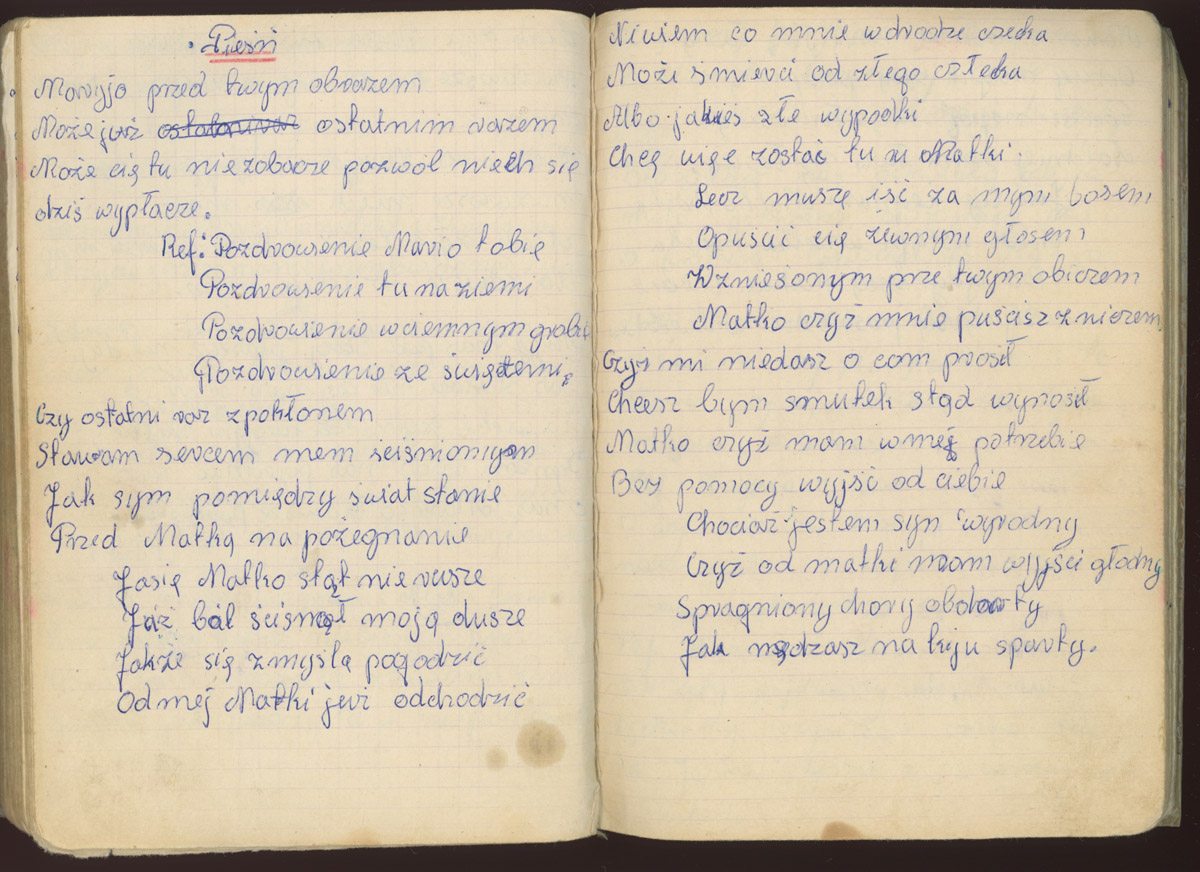 Pieśń
Maryjo przed twym obrazem
Może już ostatnim razem
Może cię tu nie zobacze pozwól niech się
dziś wypłacze.
Ref: Pozdrowienie Mario tobie
Pozdrowienie tu na ziemi
Pozdrowienie w ciemnym grobie
Pozdrowienie ze świętemi
Czy ostatni raz z pokłonem
Stawam sercem mem sciśnionym
Jak sym pomiędzy świat stanie
Przed Matką na pożegnanie
Ja się Matko stąt nie rusze
Już ból ścisnął moją dusze
Jakże się z myślą pogodzić
Od mej Matki już odchodzić
Niwiem co mnie w drodze czeka
Może śmierci od złego człeka
Albo jakieś złe wypadki
Chcę więc zostać tu u Matki.
Lecz muszę iść za mym losem
Opuścić cię rzewnym głosem
Wzniesonym prze twym obiczem
Matko czyż mnie puścisz z niczem
Czyż mi niedasz o com prosił
Cheesz bym smutek stąd wynosił
Matko czyż mam w mej potrzebie
Bez pomocy wyjść od ciebie
Chociaż jestem syn wyrodny
Czyż od matki mam wyjści głodny
Spragniony chory obdarty
Jak nędzasz na kiju sparty.